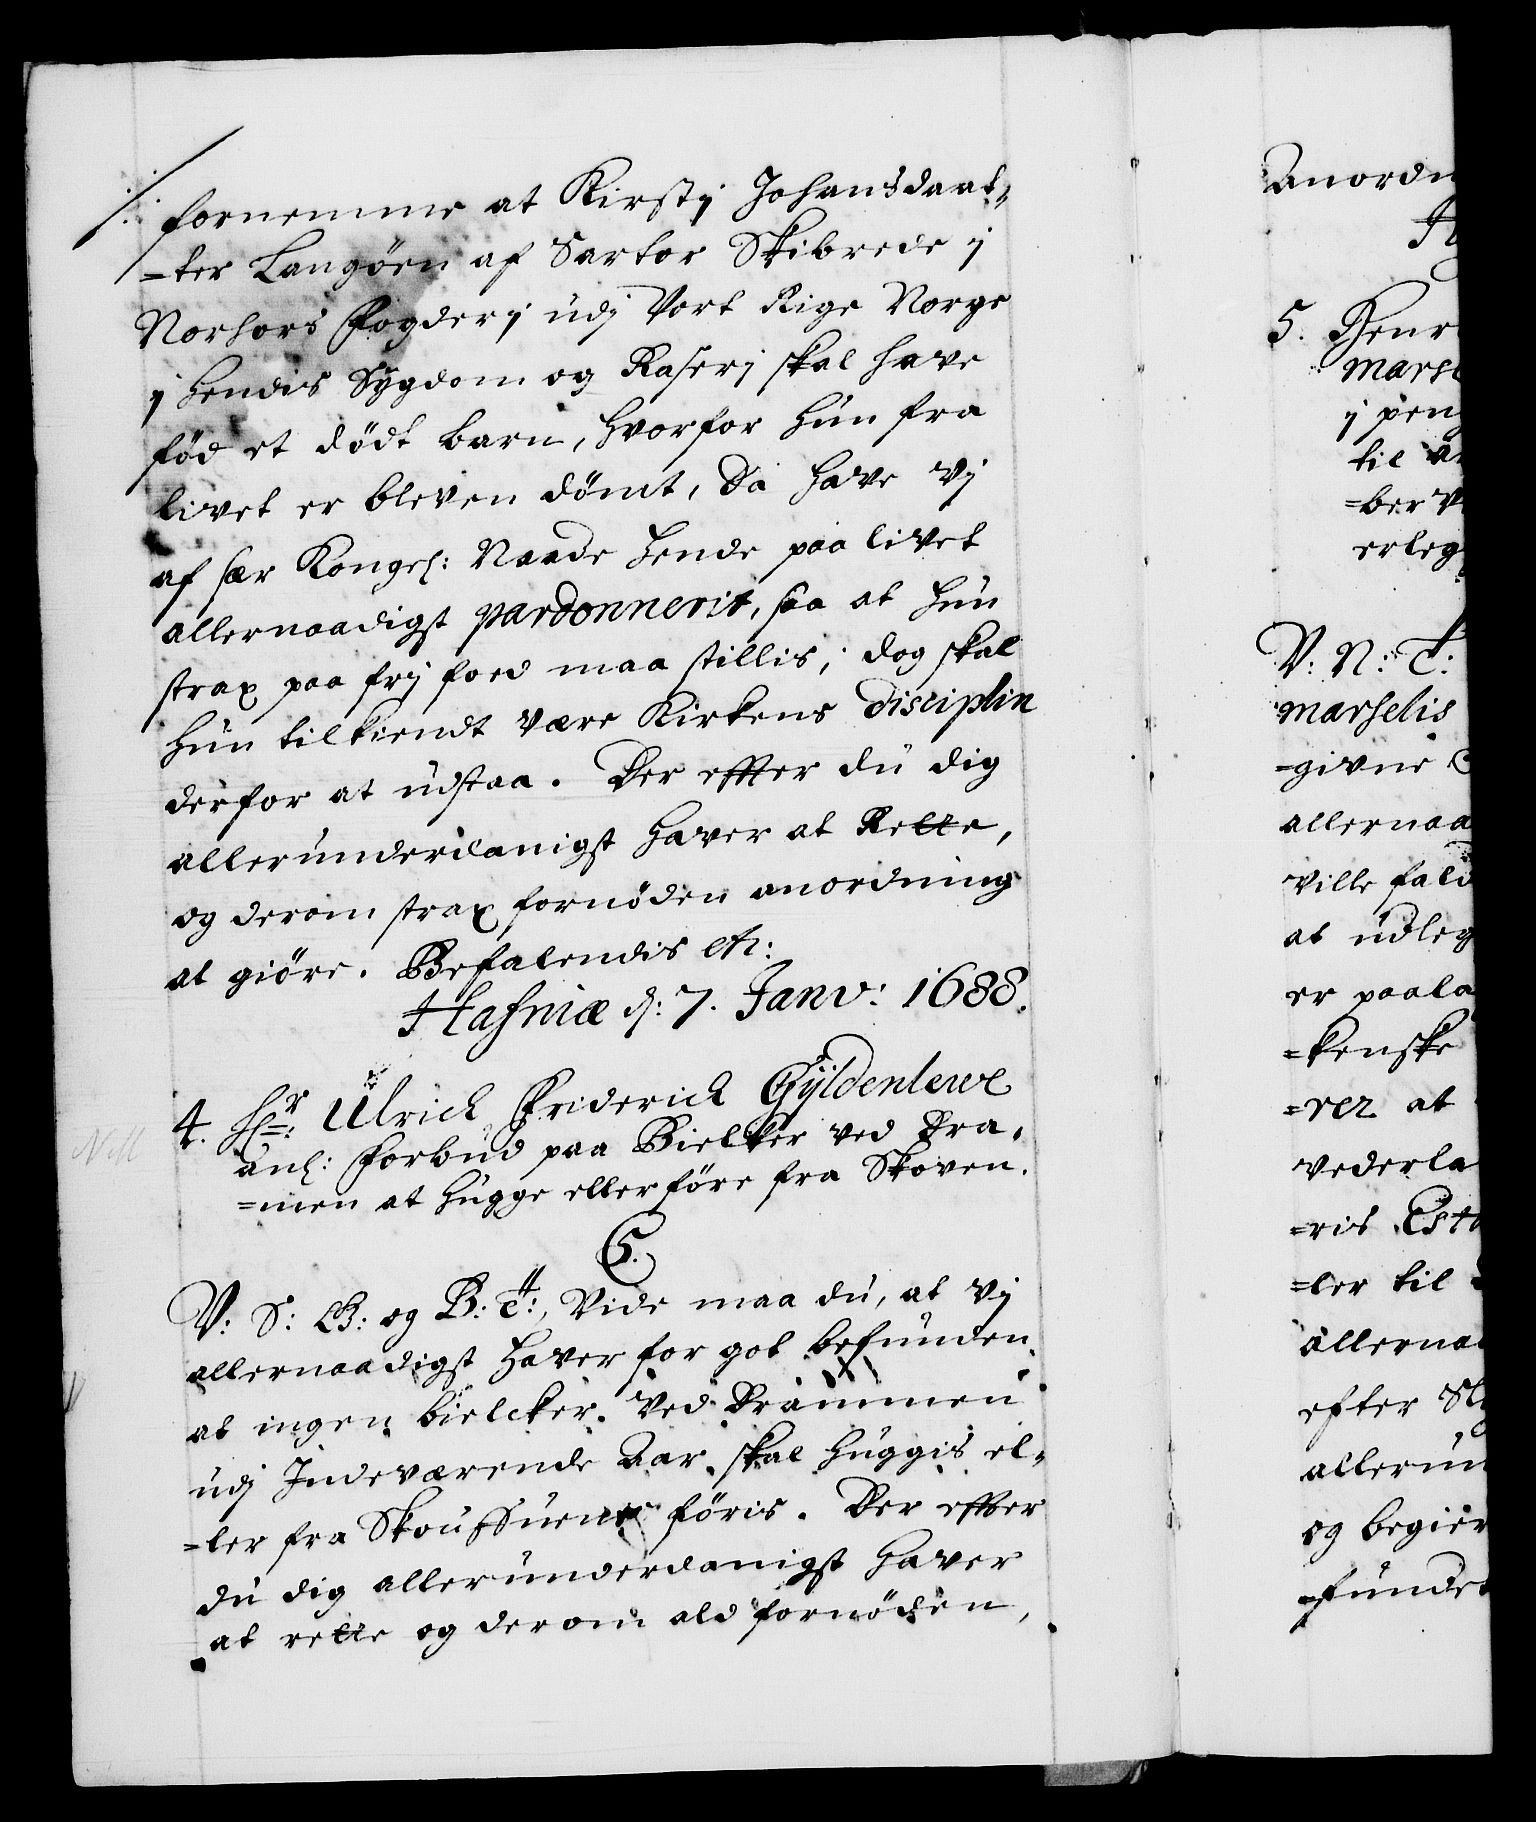 fornemme at Kirstj Johansdaat-
=ter Langöen af Sartor Skibrede j
Norhors Fogderj udj Vort Rige Norge
j hendis Sygdom og Raserj skal have
föd et dödt barn, hvorfor hun fra
livet er bleven dömt, Da have Vj
af sær Kongel: Naade hende paa livet
allernaadigst pardonnerit, saa at hun
strax paa frj foed maa stillis, dog skal
hun tilkiendt være Kirkens disciplin
derfor at udstaa. Der effter du dig
allerunderdanigst haver at Rette,
og derom strax fornöden anordning
at giöre. Befalendis etc:
Hafniæ d: 7. Janv: 1688.
4. Hr: Ulrich Friderich Gyldenlewe
anl: Forbud paa Bielker ved Dra-
=men at hugge eller före fra Skoven.
C5.
V: S: B: og B: T:, Vide maa du, at Vj
allernaadigst haver for got befunden
at ingen bielcker ved Drammen
udj Indeværende Aar skal huggis el-
=ler fra Skouffuene föris. Der effter
du dig allerunderdanigst haver
at rette og derom ald fornöden,
Anordn
5. Henr
Marse
j pen
til
=ber
erleg
V: N: T:
Marselis
=givne
allernaa
ville fald
at udleg
er paala
=kenske
=rer at
vederla
=ris Est
=ler til
allernaa
efter
allerun
og begier
=funde